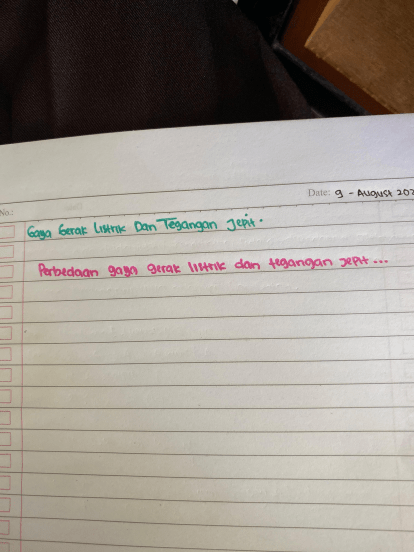 Date: 9 - August 202
No.:
Gaya Gerak Listrik Dan Tegangan Jepit.
Perbedaan gaya gerak listrik dan tegangan jepit...